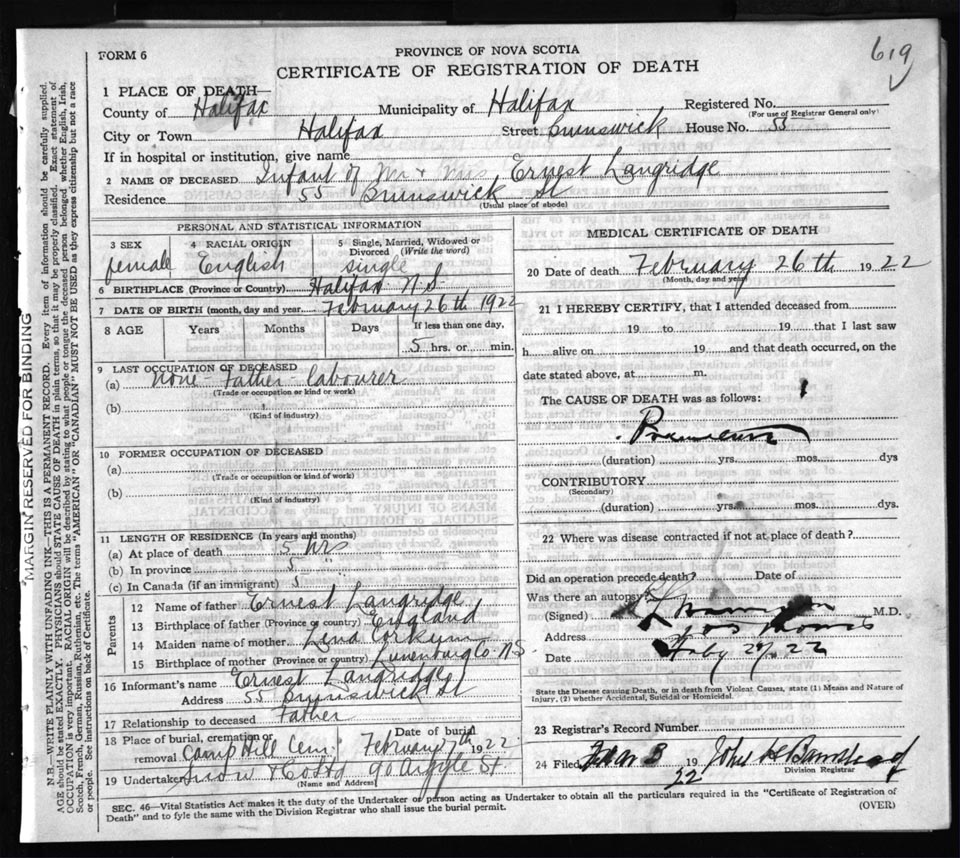 619
FORM 6
PROVINCE OF NOVA SCOTIA
CERTIFICATE OF REGISTRATION OF DEATH
1 PLACE OF DEATH—
County of Halifax Municipality of Halifax Registered No.
(For use of Registrar General only)
City or Town Halifax Street Brunswick House No. 55
If in hospital or institution, give name
2 NAME OF DECEASED Infant of Mr + Mrs Ernest Langridge
Residence 55 Brunswick St
(Usual place of abode)
PERSONAL AND STATISTICAL INFORMATION
3 SEX 4 RACIAL ORIGIN 5 Single, Married, Widowed or Divorced (Write the word)
female English single
6 BIRTHPLACE (Province or Country) Halifax N.S.
7 DATE OF BIRTH (month, day and year) February 26th 1922
8 AGE Years Months Days If less than one day,
5 hrs. or min.
9 LAST OCCUPATION OF DECEASED
(a) none - Father - labourer
(Trade or occupation or kind or work)
(b)
(Kind of industry)
10 FORMER OCCUPATION OF DECEASED
(a)
(Trade or occupation or kind of work)
(b)
(Kind of industry)
11 LENGTH OF RESIDENCE (In years and months)
(a) At place of death 5 hrs
(b) In province 5 "
(c) In Canada (if an immigrant) 5
Parents
12 Name of father Ernest Langridge
13 Birthplace of father (Province or country) England
14 Maiden name of mother Lena Corkum
15 Birthplace of mother (Province or country) Lunenburg Co N.S.
16 Informant's name Ernest Langridge
Address 55 Brunswick St
17 Relationship to deceased Father
18 Place of burial, cremation or removal Camp Hill Cem Date of burial February 1922
19 Undertaker Snow & Co Ltd 90 Argyle St.
(Name and Address)
MEDICAL CERTIFICATE OF DEATH
20 Date of death February 26th 1922
(Month, day and year)
21 I HEREBY CERTIFY, that I attended deceased from
19 to 19 that I last saw
h alive on 19 and that death occurred, on the
date stated above, at m.
The CAUSE OF DEATH was as follows:
(duration) yrs. mos. dys
CONTRIBUTORY
(Secondary)
(duration) yrs. mos. dys.
22 Where was disease contracted if not at place of death?
Did an operation precede death? Date of
Was there an autopsy?
(Signed) M.D.
Address
Date 22
State the Disease causing Death, or in death from Violent Causes, state (1) Means and Nature of
Injury, (2) whether Accidental, Suicidal or Homicidal.
23 Registrar's Record Number
24 Filed Mar 3 19 22 John
Division Registrar
SEC. 46—Vital Statistics Act makes it the duty of the Undertaker or person acting as Undertaker to obtain all the particulars required in the "Certificate of Registration of
Death" and to fyle the same with the Division Registrar who shall issue the burial permit.
(OVER)
MARGIN RESERVED FOR BINDING
N.B.—WRITE PLAINLY WITH UNFADING INK—THIS IS A PERMANENT RECORD. Every item of information should be carefully supplied.
AGE should be stated EXACTLY. PHYSICIANS should STATE CAUSE OF DEATH in plain terms, so that it may be properly classified. Exact statement of
OCCUPATION is very important. RACIAL ORIGIN will be described by stating to what people or tongue the deceased person belonged whether English, Irish,
Scotch, French, German, Russian, Ruthenian, etc. The terms "AMERICAN" or "CANADIAN" MUST NOT BE USED as they express citizenship but not a race
or people. See instructions on back of Certificate.